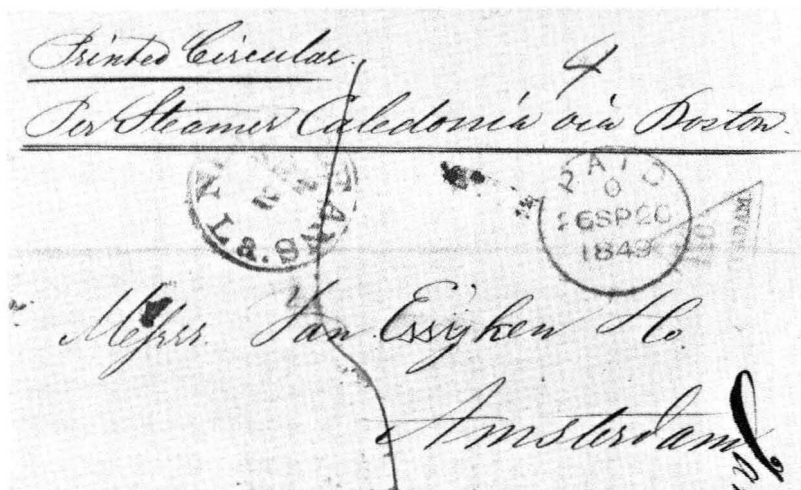 Printed Circular.
4
Per Steamer Caledonia via Boston.
PAID
26SP26
1849
Messrs. Van Essyken &Co.
Amsterdam